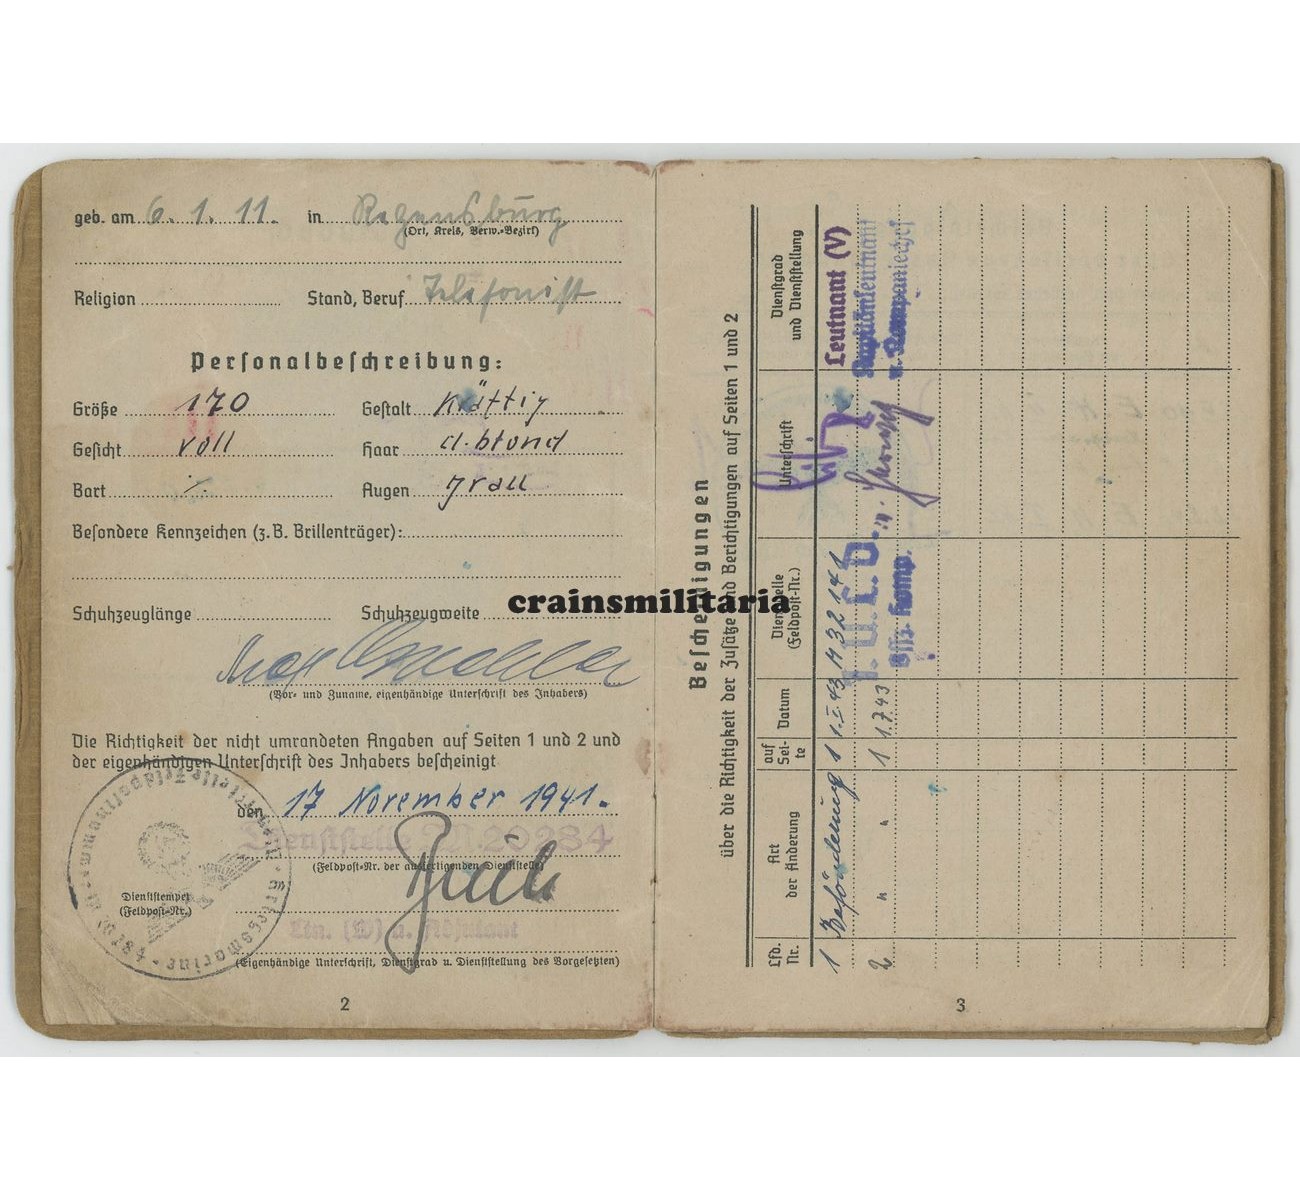 geb. am 6. 1. 11. in Regensburg
(Ort, Kreis, Verw.-Bezirk)
Religion Stand, Beruf Telefonist
Personalbeschreibung:
Größe 170 Gestalt kräftig
Gesicht voll Haar d.blond
Bart ⁒ Augen grau
Besondere Kennzeichen (z. B. Brillenträger):
Schuhzeuglänge Schuhzeugweite
crainsmilitaria
Max
(Vor- und Zuname, eigenhändige Unterschrift des Inhabers)
Die Richtigkeit der nicht umrandeten Angaben auf Seiten 1 und 2 und
der eigenhändigen Unterschrift des Inhabers bescheinigt
den 17 November 1941.
Dienststelle M.20284
(Feldpost-Nr. der ausfertigenden Dienststelle)
Dienststempel
(Feldpost-Nr.)
Kriegsmarine
Ltn. (W) u. Adjutant
(Eigenhändige Unterschrift, Dienstgrad u. Dienststellung des Vorgesetzten)
2
Bescheinigungen
über die Richtigkeit der Zusätze und Berichtigungen auf Seiten 1 und 2
Lfd. Nr. Art der Änderung auf Sei- te Datum Dienststelle (Feldpost-Nr.) Unterschrift Dienstgrad und Dienststellung
1 Beförderung 1 1.I.43 M 32 141 Leutnant (V)
2 " " " 1 1.7.43 Kapitänleutnant
u. Kompaniechef
3